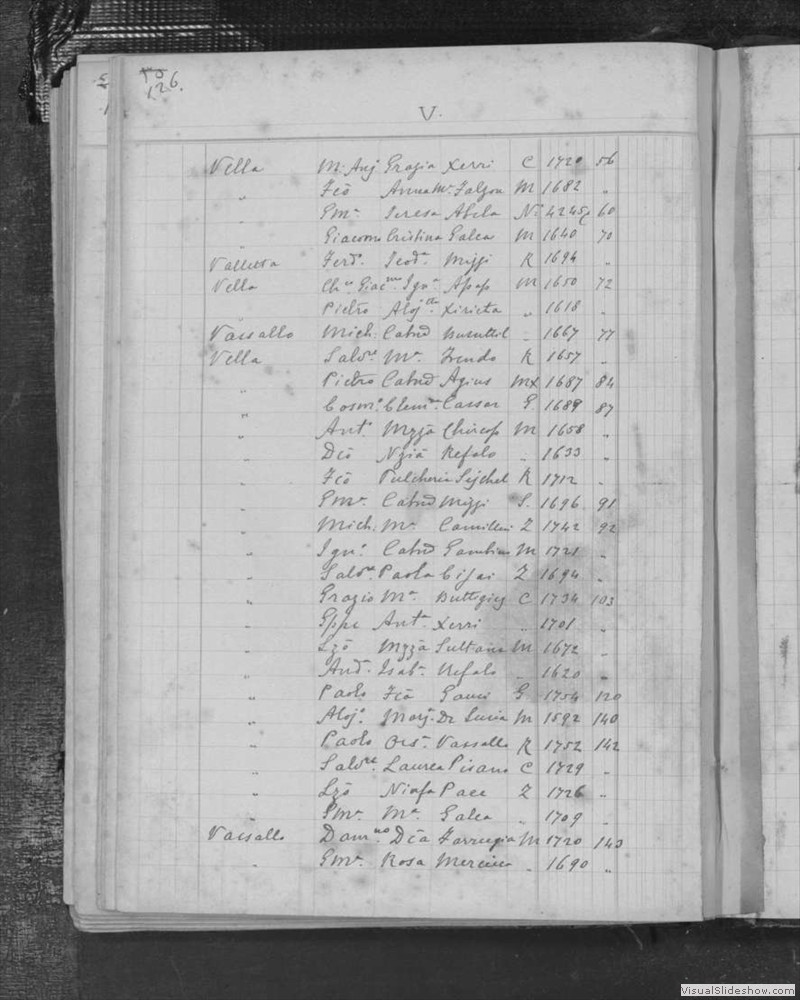 126.
V.
Vella M. Anj Grazia Xerri C 1720 56
" Fcō Anna Mª Falzon M 1682 "
" Gmª Teresa Abela Ni 4245 60
" Giacomo Cristina Galea M 1640 70
Valletta Ferdº Teodª Mizzi R 1694 "
Vella Ignª Apap M 1650 72
" Pietro Xiricta " 1618 "
Vassallo Mich: Catnd Busuttil " 1667 77
Vella Salvre Mª Frendo R 1657 "
" Pietro Catnd Agius Mx 1687 84
" Cosmº Clemza Cassar G. 1689 87
" Antº Mzzā Chircop M 1658 "
" Dcō Nziā Refalo " 1633 "
" Fcō Pulcheria Sijchel R 1712 "
" Gmº Catnd Mizzi S. 1696 91
" Mich: Mª Camilleri Z 1742 92
" Ignº Catnd Gambin M 1721 "
" Salvre Paola Z 1694 "
" Grazio Mª Buttigieg C 1734 103
" Gppe Antª Xerri " 1701 "
" Lzō Mzzā Sultana M 1672 "
" And. Isabª Refalo " 1620 "
" Paolo Fcā Gauci G 1754 120
" Alojº Marjª De Lucia M 1592 140
" Paolo Orsª Vassallo R 1752 142
" Salvre Laurea Pisano C 1729 "
" Lzō Ninfa Pace Z 1726 "
" Gmº Mª Galea " 1709 "
Vassallo Damno Dcā Farrugia M 1720 143
" Gmº Rosa Mercieca " 1690 "
VisualSlideshow.com